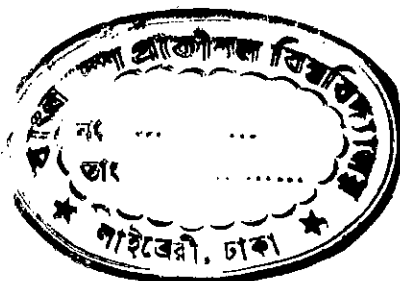 প্রকৌশল বিশ্ববিদ্যালয়
নং ... ...
তাং ... ......
লাইব্রেরী, ঢাকা